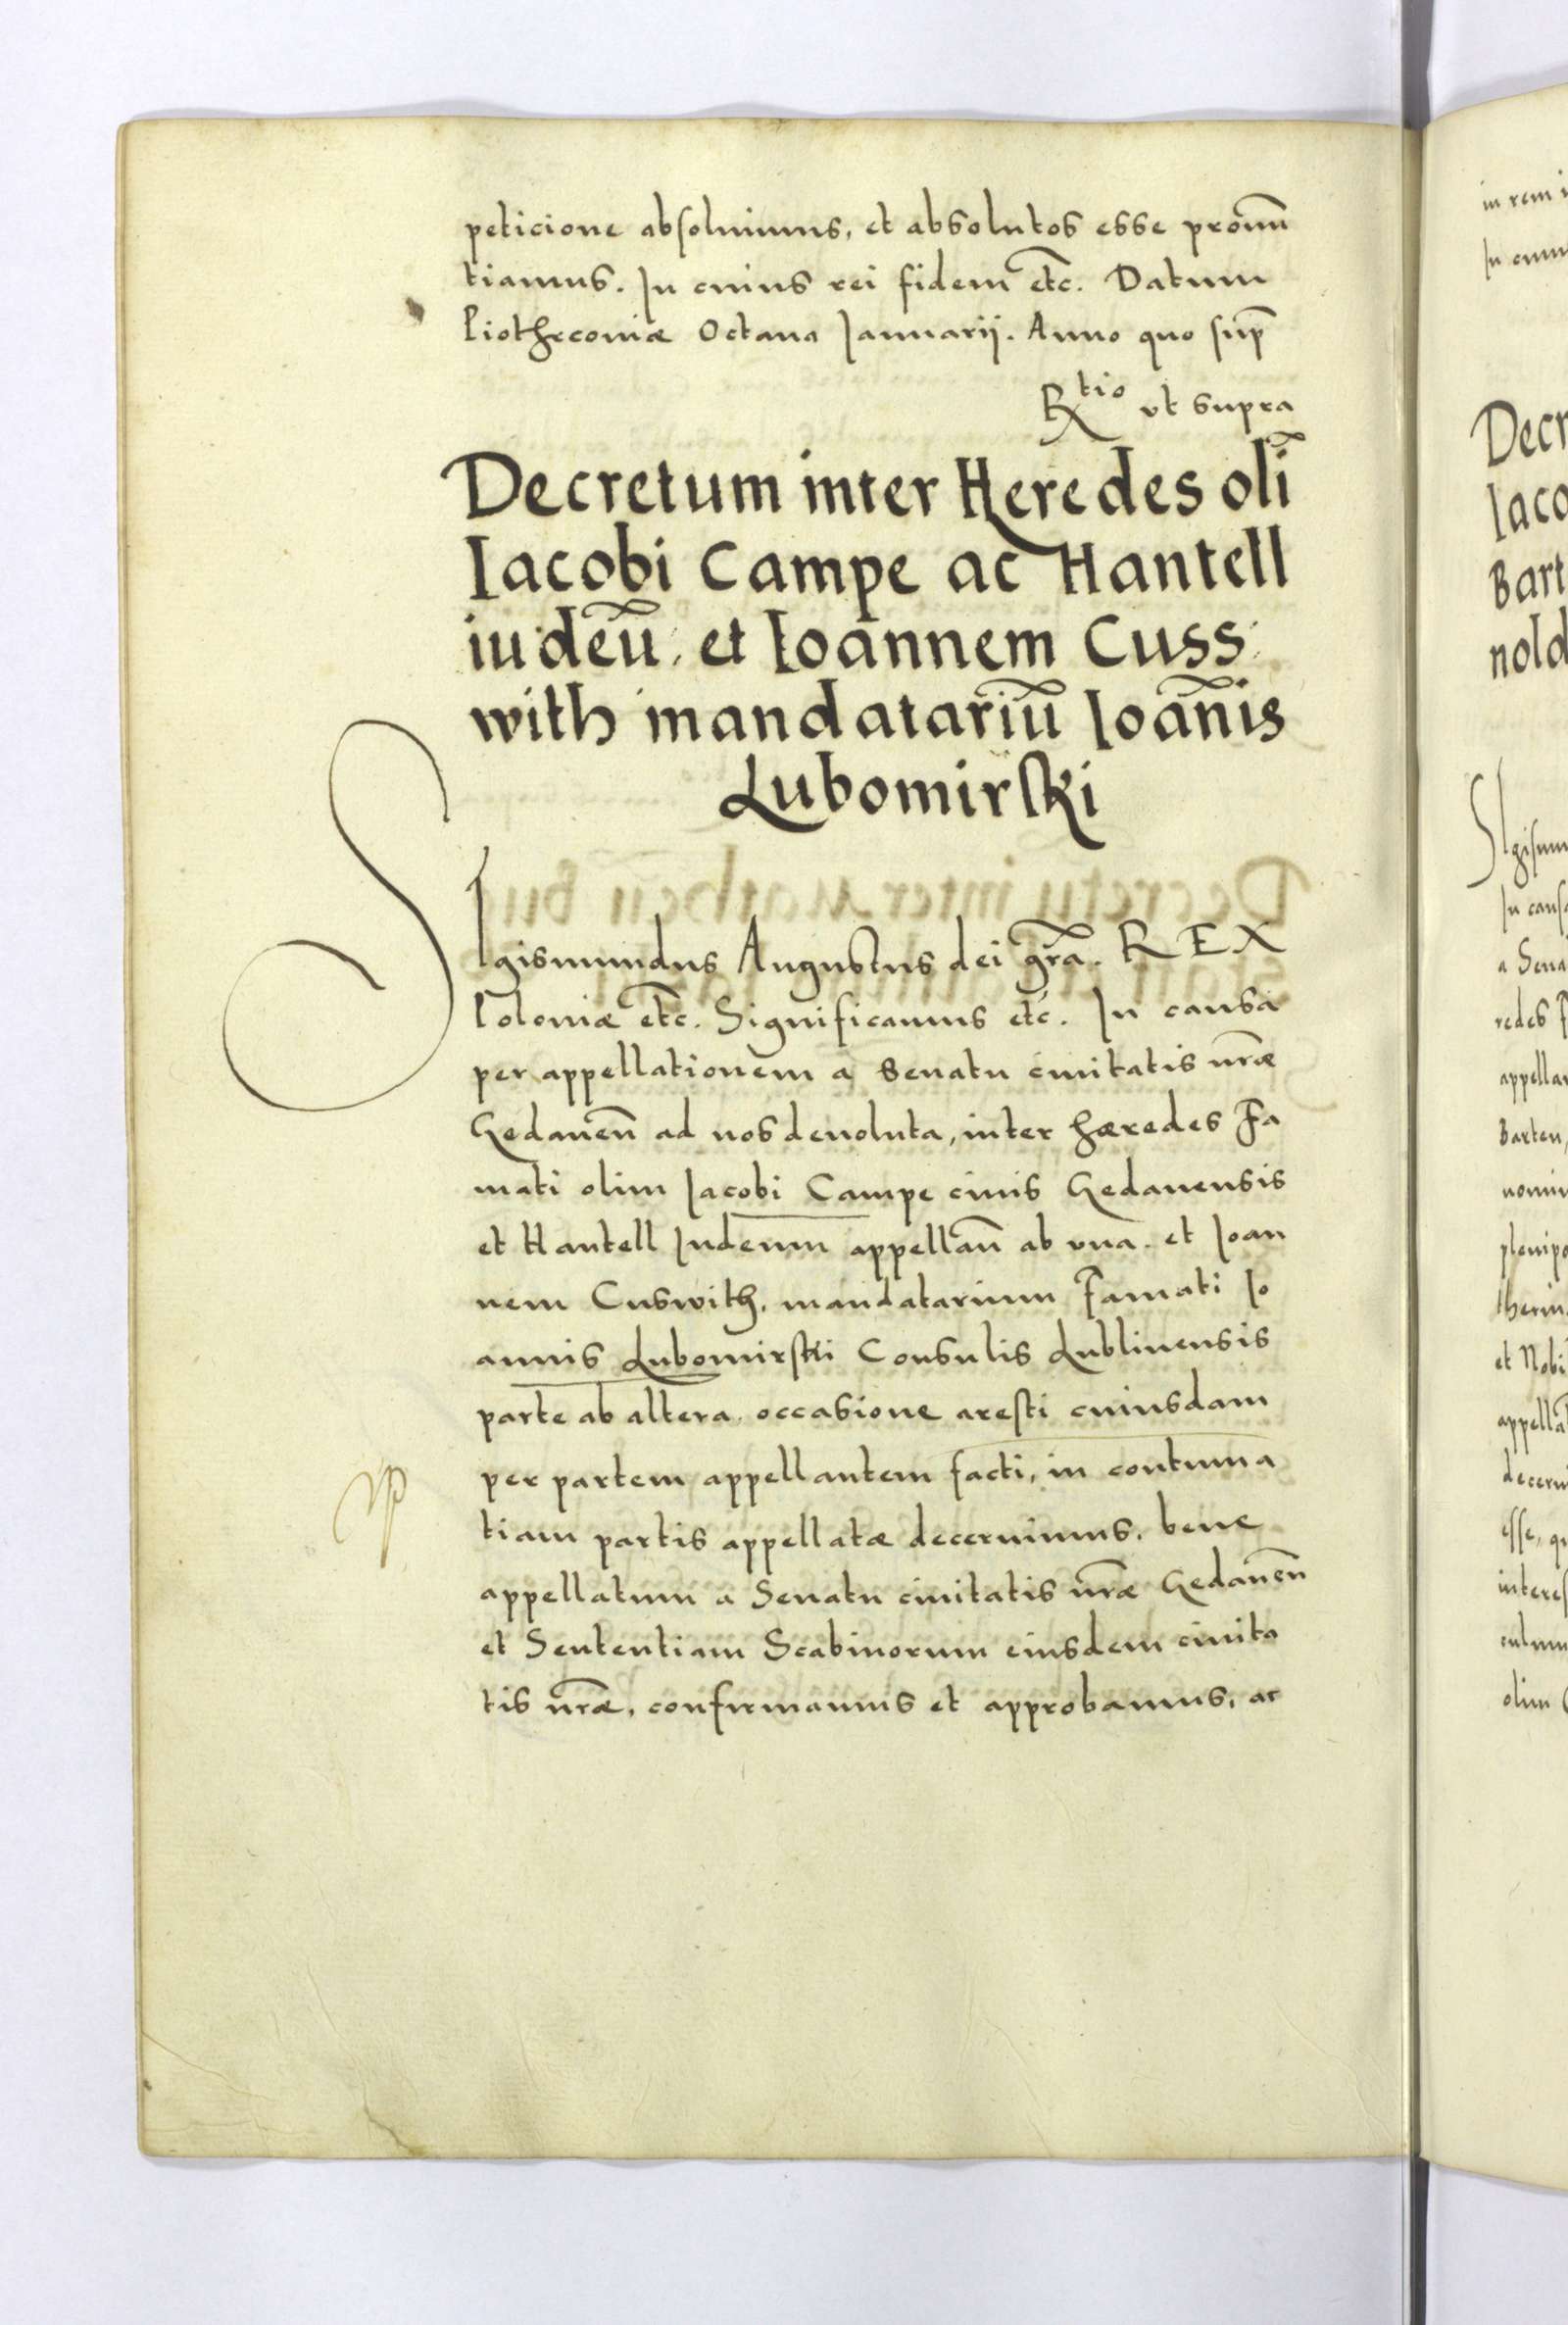 peticione absoluimus, et absolutos esse pronun̄
tiamus. In cuius rei fidem etc̄. Datum
Piothrconiæ Octaua Ianuarij. Anno quo sup̄
Rtio vt supra
Decretum inter Heredes oli̅
Iacobi Campe ac Hantell
iudeū, et Ioannem Cuss
with mandatariū Ioānis
Lubomirski
SIgismundus Augustus dei gr̄a. REX
Poloniæ etc̄. Significamus etc̄. In causa
per appellationem a Senatu ciuitatis nr̄æ
Gedaneñ ad nos deuoluta, inter hæredes Fa
mati olim Iacobi Campe ciuis Gedanensis
et Hantell Iudeum appellañ ab vna. et Ioan
nem Cuswith, mandatarium Famati Io
annis Lubomirski Consulis Lublinensis
parte ab altera, occasione aresti cuiusdam
per partem appellantem facti, in contuma
tiam partis appellatæ decernimus, bene
appellatum a Senatu ciuitatis nr̄æ Gedaneñ
et Sententiam Scabinorum eiusdem ciuita
tis nr̄æ, confirmamus et approbamus, ac
in rem
Decr
Iaco
Bart
nold
SIgism
In caus
a Sena
redes F
appellan
Barten,
nomin
plenipo
et Nobi
appellā
decerni
esse, qu
interes
olim